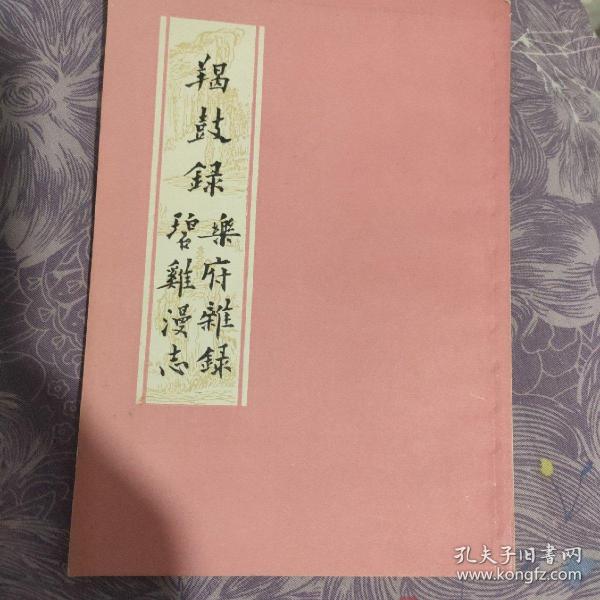 羯鼓録
樂府雜録
碧雞漫志
孔夫子旧書网
www.kongfz.com